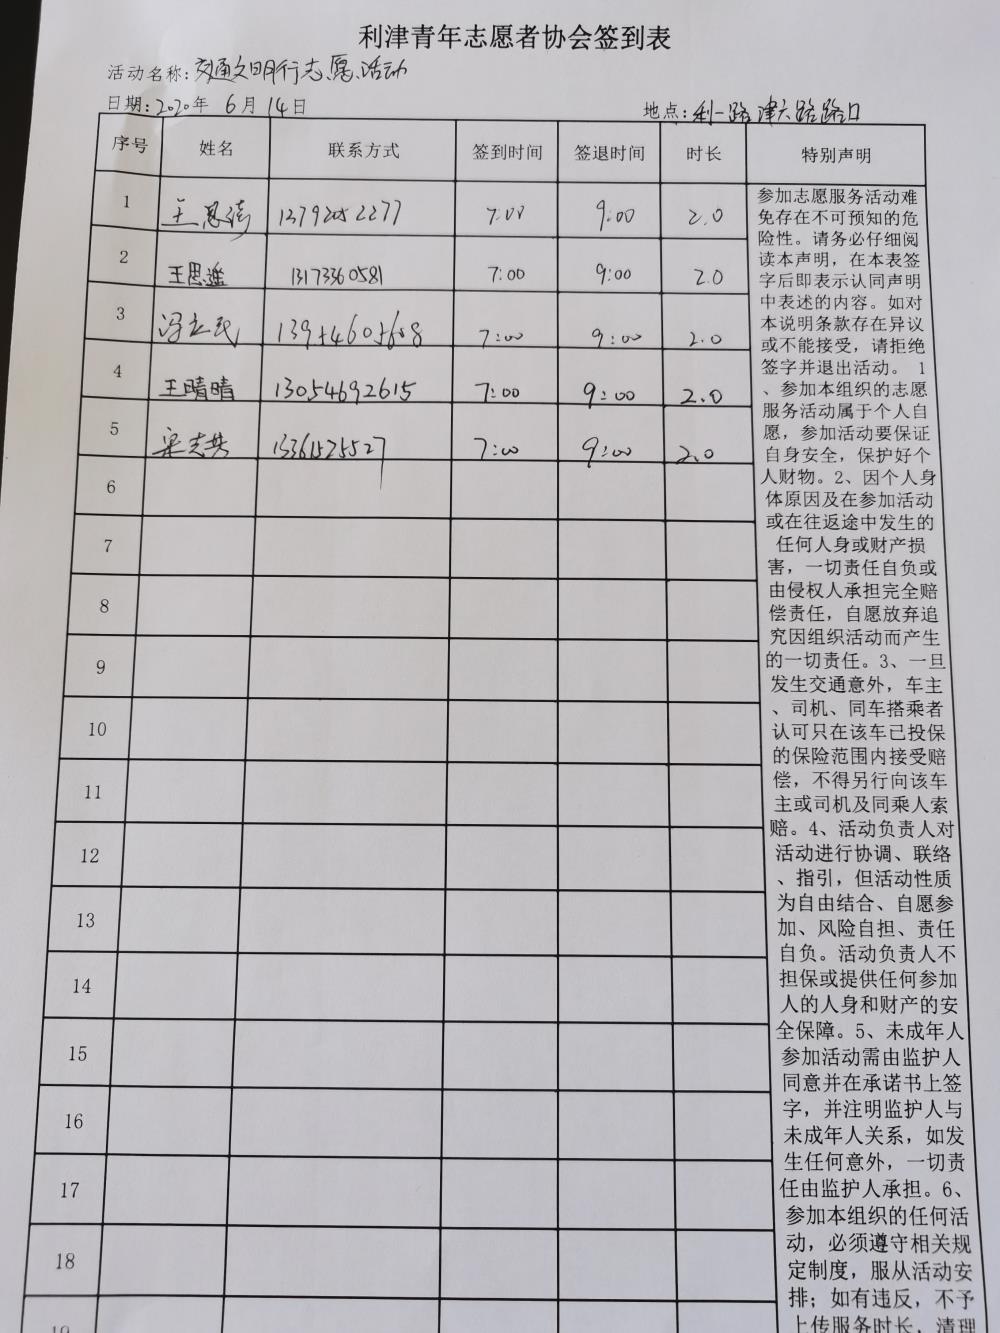 利津青年志愿者协会签到表
活动名称:交通文明行志愿活动
日期:2020年 6月14日 地点:利一路津六路路口
序号 姓名 联系方式 签到时间 签退时间 时长 特别声明
1 王恩涛 13792052277 7:00 9:00 2.0
2 王思遥 13173360581 7:00 9:00 2.0
3 冯立民 13954605608 7:00 9:00 2.0
4 王晴晴 13054692615 7:00 9:00 2.0
5 梁志共 13361525527 7:00 9:00 2.0
6
7
8
9
10
11
12
13
14
15
16
17
18
19
参加志愿服务活动难
免存在不可预知的危
险性。请务必仔细阅
读本声明，在本表签
字后即表示认同声明
中表述的内容。如对
本说明条款存在异议
或不能接受，请拒绝
签字并退出活动。 1
、参加本组织的志愿
服务活动属于个人自
愿，参加活动要保证
自身安全，保护好个
人财物。2、因个人身
体原因及在参加活动
或在往返途中发生的
任何人身或财产损
害，一切责任自负或
由侵权人承担完全赔
偿责任，自愿放弃追
究因组织活动而产生
的一切责任。3、一旦
发生交通意外，车主
、司机、同车搭乘者
认可只在该车已投保
的保险范围内接受赔
偿，不得另行向该车
主或司机及同乘人索
赔。4、活动负责人对
活动进行协调、联络
、指引，但活动性质
为自由结合、自愿参
加、风险自担、责任
自负。活动负责人不
担保或提供任何参加
人的人身和财产的安
全保障。5、未成年人
参加活动需由监护人
同意并在承诺书上签
字，并注明监护人与
未成年人关系，如发
生任何意外，一切责
任由监护人承担。6、
参加本组织的任何活
动，必须遵守相关规
定制度，服从活动安
排；如有违反，不予
上传服务时长，清理